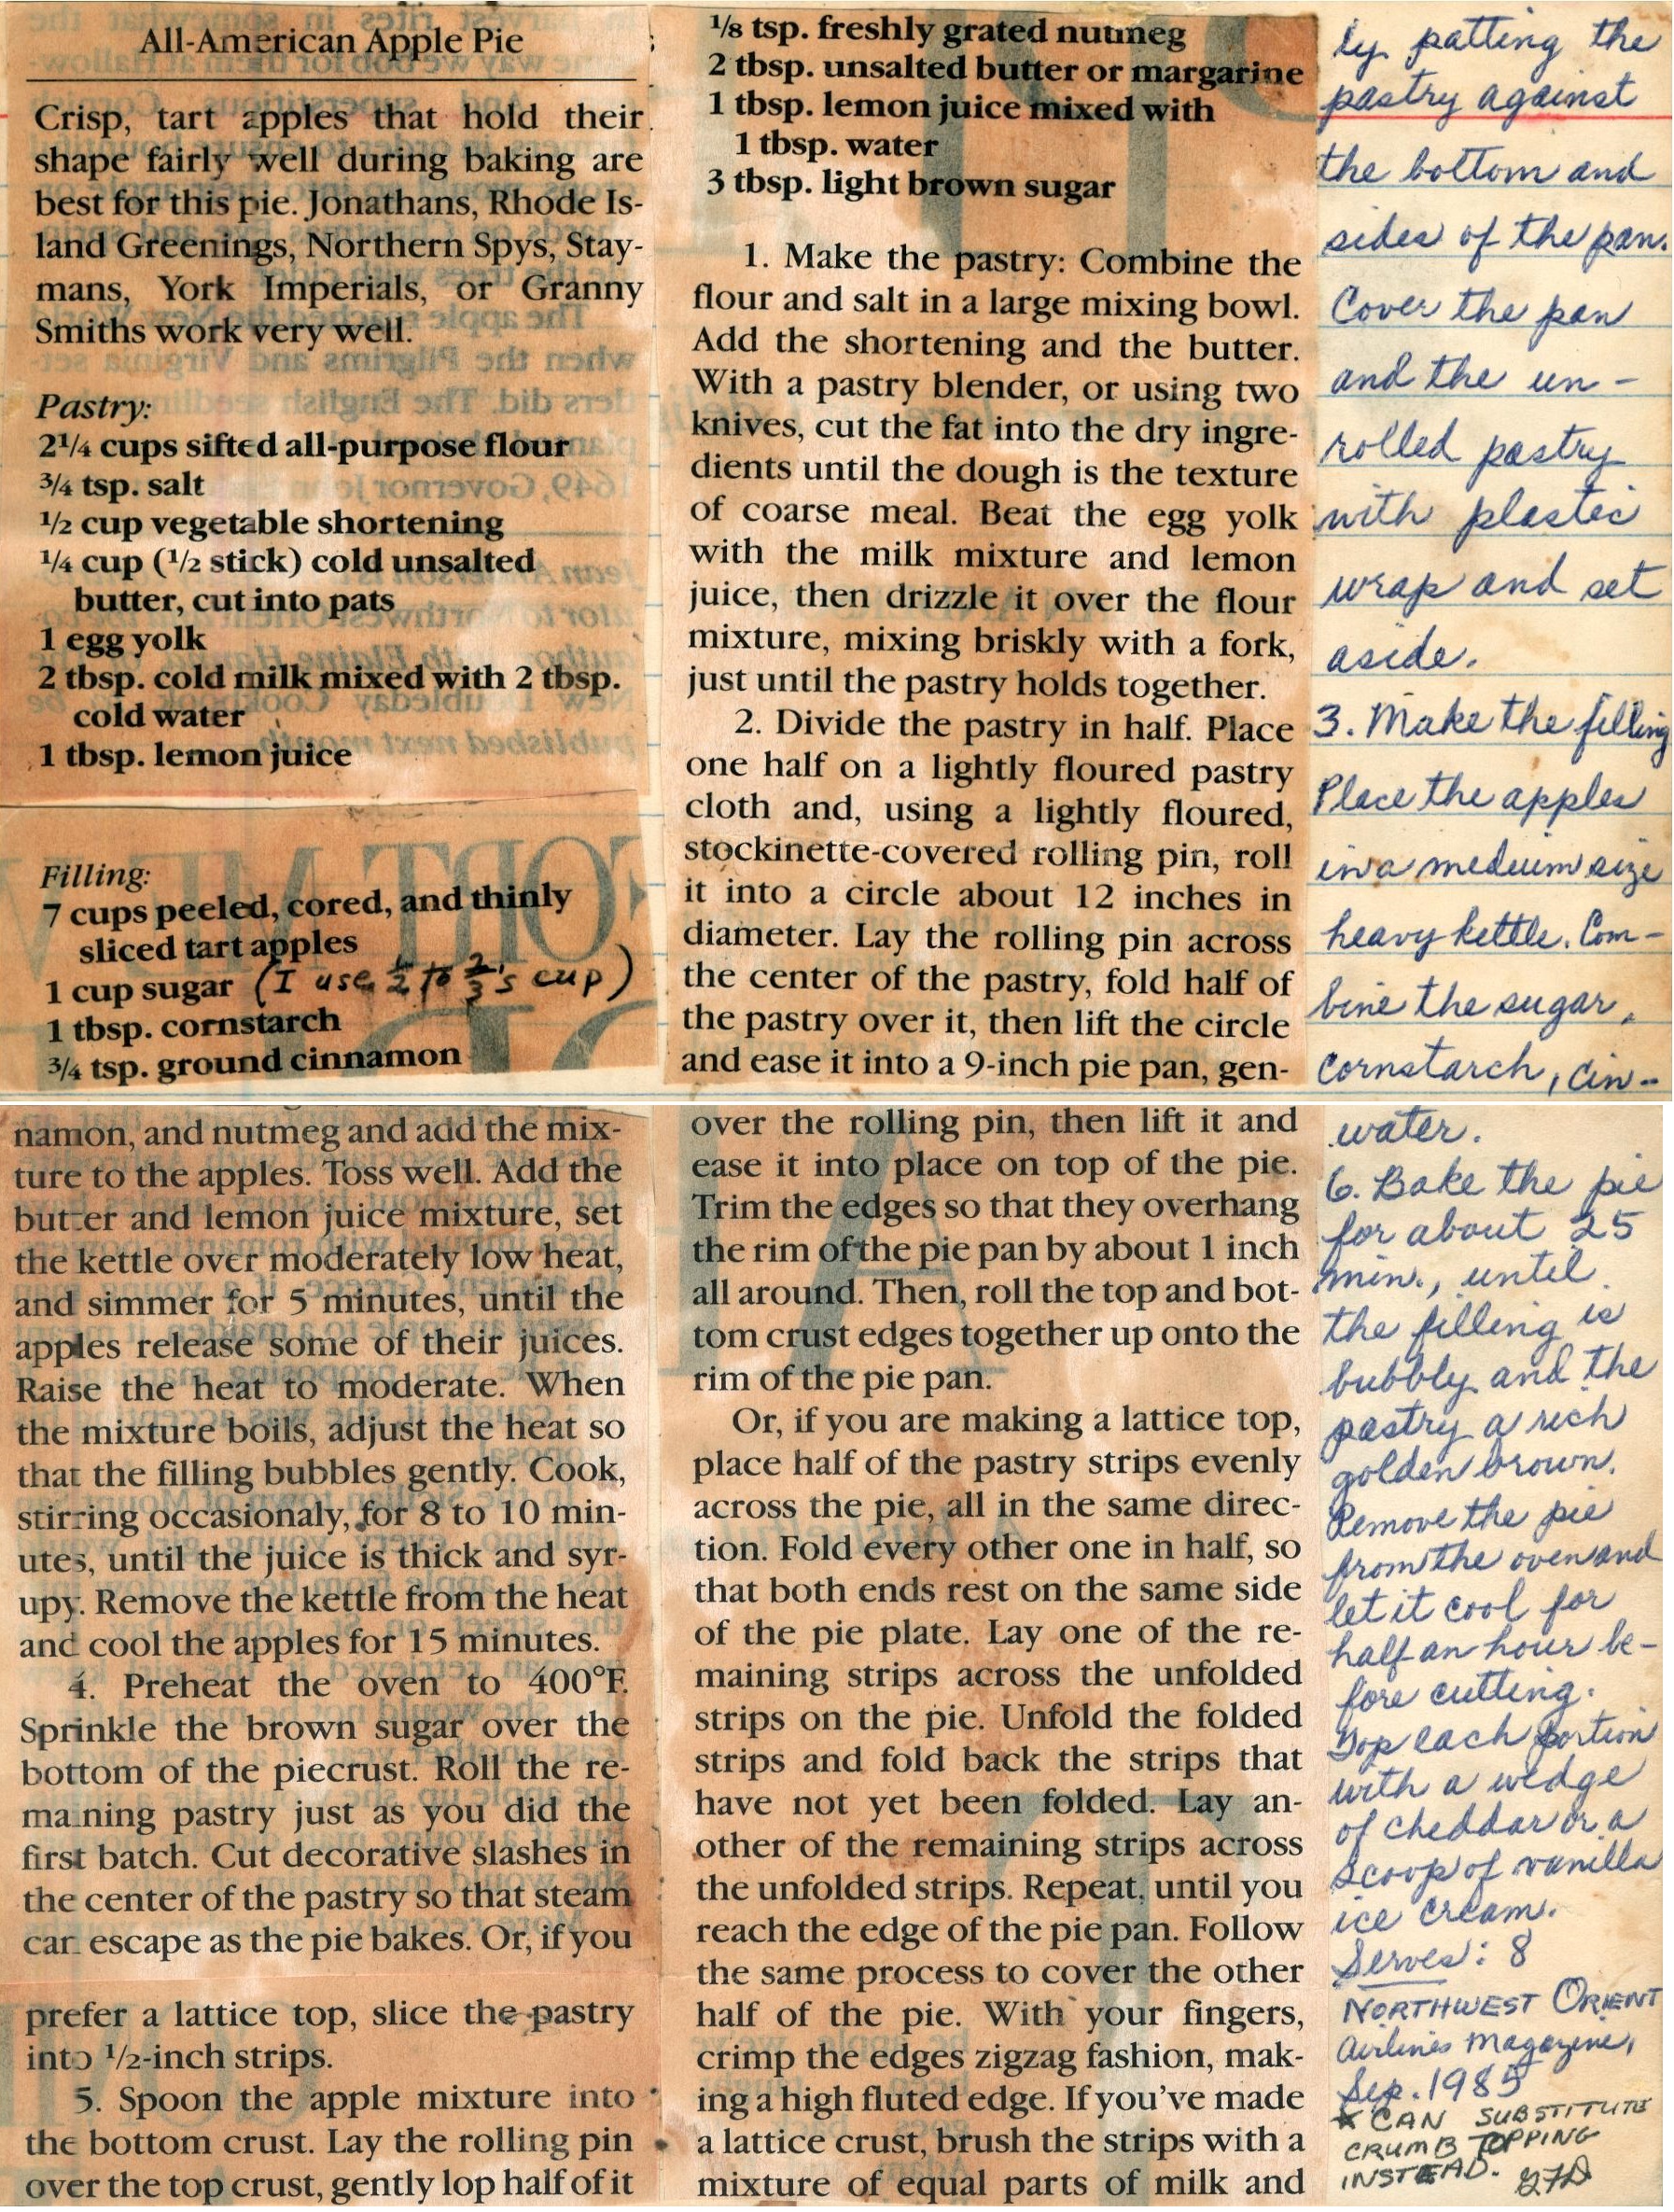 All-American Apple Pie
Crisp, tart apples that hold their
shape fairly well during baking are
best for this pie. Jonathans, Rhode Is-
land Greenings, Northern Spys, Stay-
mans, York Imperials, or Granny
Smiths work very well.
Pastry:
2¼ cups sifted all-purpose flour
¾ tsp. salt
½ cup vegetable shortening
¼ cup (½ stick) cold unsalted
butter, cut into pats
1 egg yolk
2 tbsp. cold milk mixed with 2 tbsp.
cold water
1 tbsp. lemon juice
Filling:
7 cups peeled, cored, and thinly
sliced tart apples
1 cup sugar (I use ½ to ⅔'s cup)
1 tbsp. cornstarch
¾ tsp. ground cinnamon
⅛ tsp. freshly grated nutmeg
2 tbsp. unsalted butter or margarine
1 tbsp. lemon juice mixed with
1 tbsp. water
3 tbsp. light brown sugar
1. Make the pastry: Combine the
flour and salt in a large mixing bowl.
Add the shortening and the butter.
With a pastry blender, or using two
knives, cut the fat into the dry ingre-
dients until the dough is the texture
of coarse meal. Beat the egg yolk
with the milk mixture and lemon
juice, then drizzle it over the flour
mixture, mixing briskly with a fork,
just until the pastry holds together.
2. Divide the pastry in half. Place
one half on a lightly floured pastry
cloth and, using a lightly floured,
stockinette-covered rolling pin, roll
it into a circle about 12 inches in
diameter. Lay the rolling pin across
the center of the pastry, fold half of
the pastry over it, then lift the circle
and ease it into a 9-inch pie pan, gen-
ly patting the
pastry against
the bottom and
sides of the pan.
Cover the pan
and the un-
rolled pastry
with plastic
wrap and set
aside.
3. Make the filling
Place the apples
in a medium size
heavy kettle. Com-
bine the sugar,
cornstarch, cin-
namon, and nutmeg and add the mix-
ture to the apples. Toss well. Add the
butter and lemon juice mixture, set
the kettle over moderately low heat,
and simmer for 5 minutes, until the
apples release some of their juices.
Raise the heat to moderate. When
the mixture boils, adjust the heat so
that the filling bubbles gently. Cook,
stirring occasionaly, for 8 to 10 min-
utes, until the juice is thick and syr-
upy. Remove the kettle from the heat
and cool the apples for 15 minutes.
4. Preheat the oven to 400°F.
Sprinkle the brown sugar over the
bottom of the piecrust. Roll the re-
maining pastry just as you did the
first batch. Cut decorative slashes in
the center of the pastry so that steam
can escape as the pie bakes. Or, if you
prefer a lattice top, slice the pastry
into ½-inch strips.
5. Spoon the apple mixture into
the bottom crust. Lay the rolling pin
over the top crust, gently lop half of it
over the rolling pin, then lift it and
ease it into place on top of the pie.
Trim the edges so that they overhang
the rim of the pie pan by about 1 inch
all around. Then, roll the top and bot-
tom crust edges together up onto the
rim of the pie pan.
Or, if you are making a lattice top,
place half of the pastry strips evenly
across the pie, all in the same direc-
tion. Fold every other one in half, so
that both ends rest on the same side
of the pie plate. Lay one of the re-
maining strips across the unfolded
strips on the pie. Unfold the folded
strips and fold back the strips that
have not yet been folded. Lay an-
other of the remaining strips across
the unfolded strips. Repeat, until you
reach the edge of the pie pan. Follow
the same process to cover the other
half of the pie. With your fingers,
crimp the edges zigzag fashion, mak-
ing a high fluted edge. If you've made
a lattice crust, brush the strips with a
mixture of equal parts of milk and
water.
6. Bake the pie
for about 25
min., until
the filling is
bubbly and the
pastry a rich
golden brown.
Remove the pie
from the oven and
let it cool for
half an hour be-
fore cutting.
Top each portion
with a wedge
of cheddar or a
scoop of vanilla
ice cream.
Serves: 8
NORTHWEST ORIENT
Airlines Magazine,
Sep. 1985
* CAN SUBSTITUTE
CRUMB TOPPING
INSTEAD.